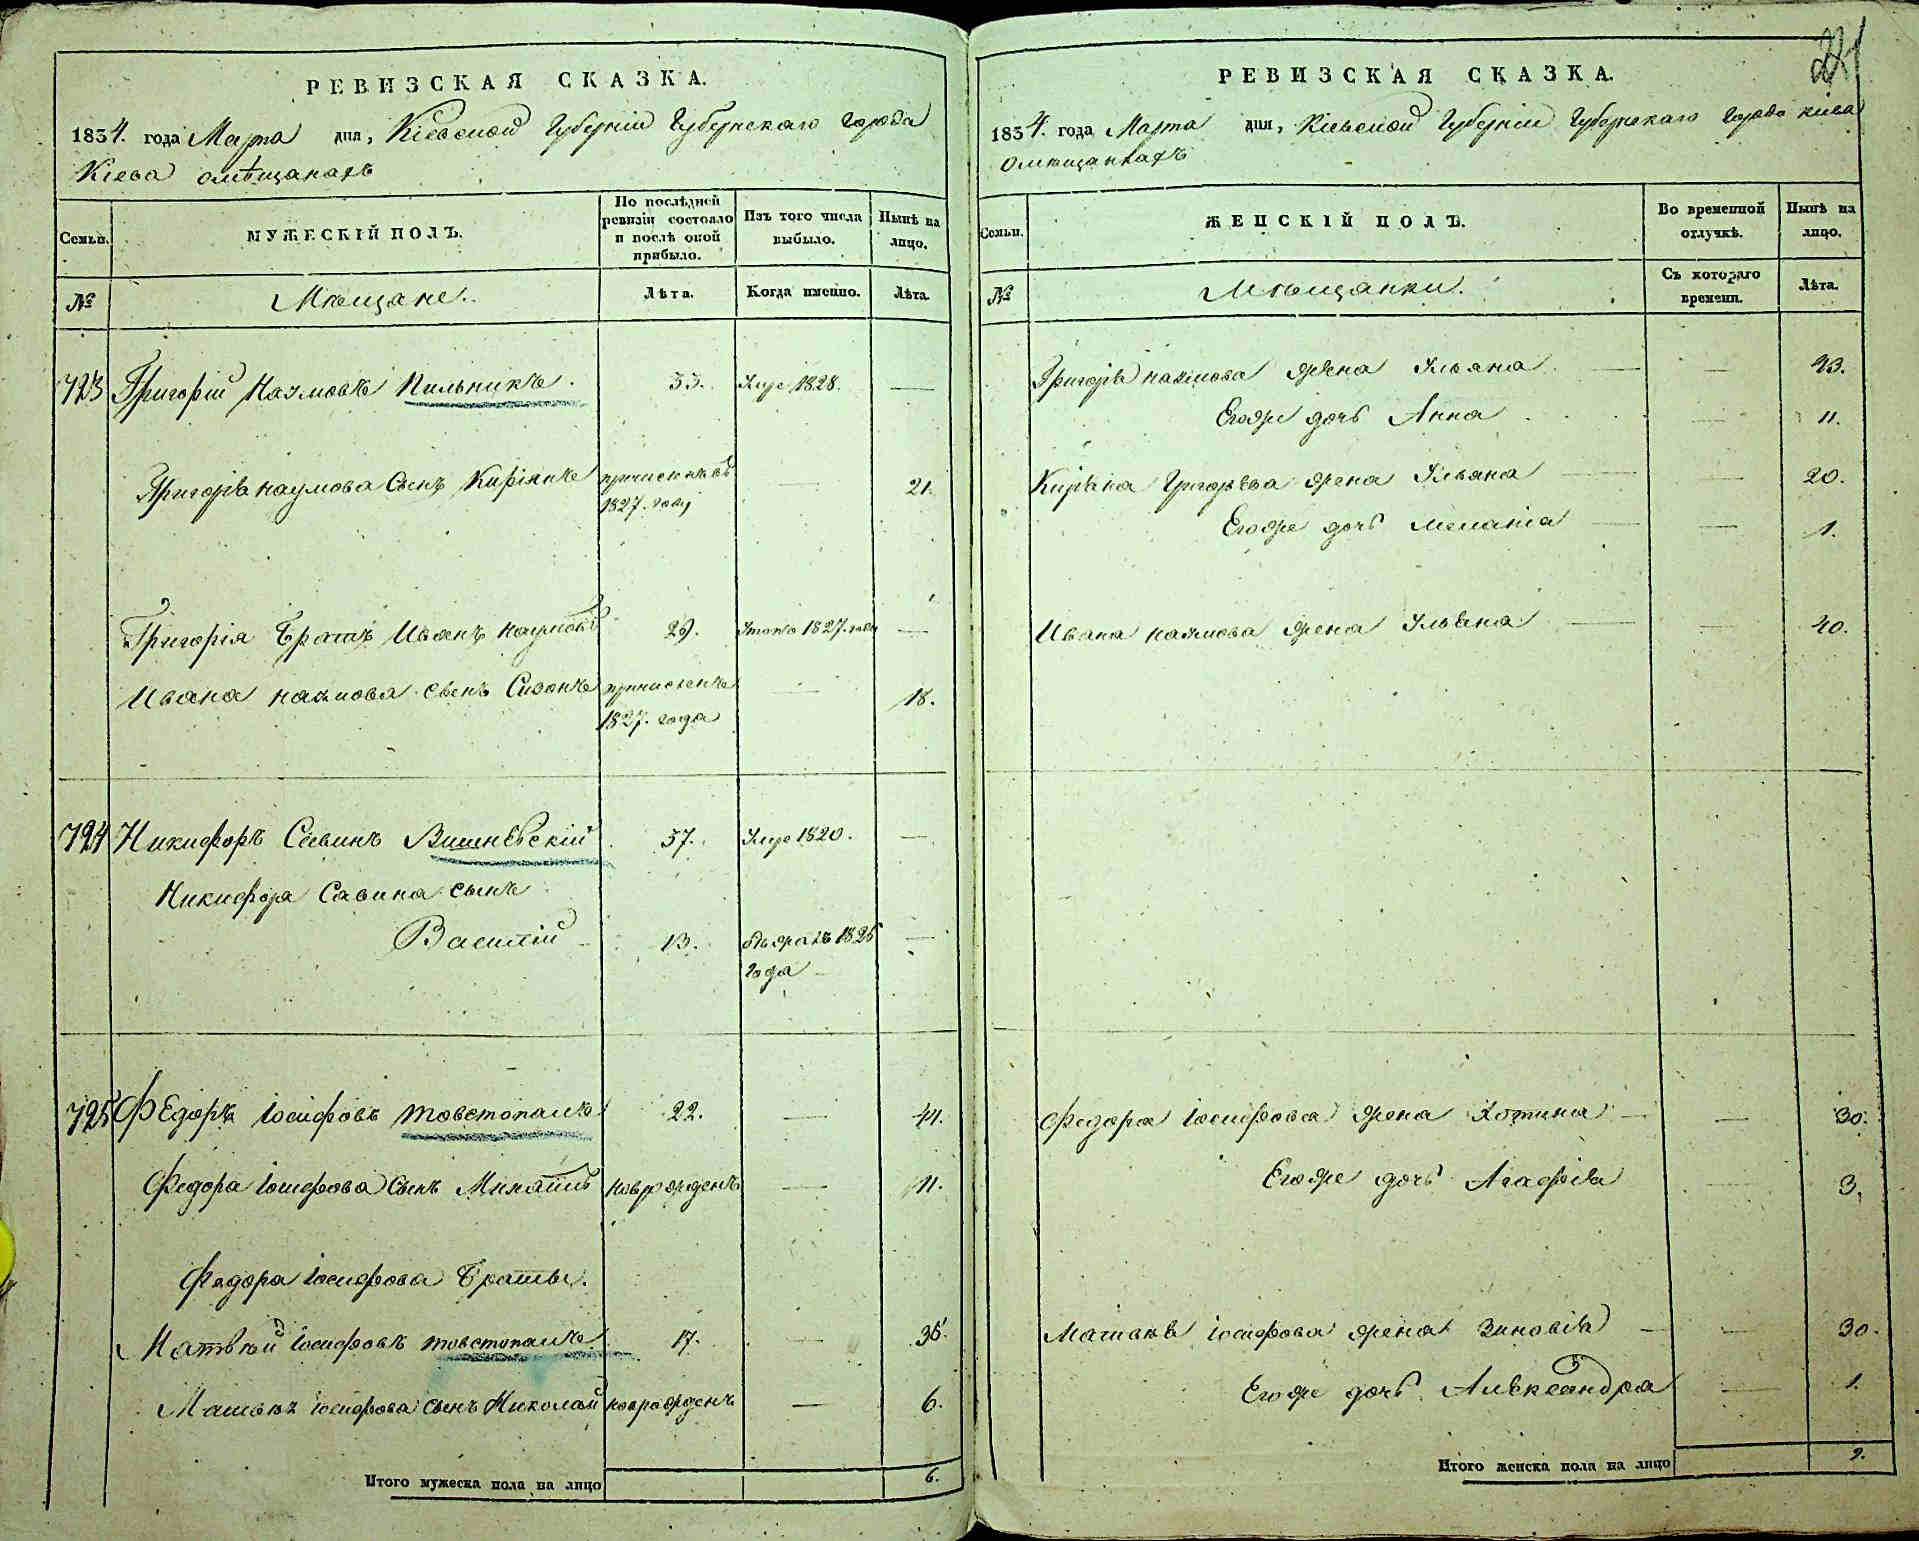 РЕВИЗСКАЯ СКАЗКА.
1834. года Марта дня, Кіевской Губерніи Губернскаго города
Кіева омѣщанахъ
Семьи.
МУЖЕСКІЙ ПОЛЪ.
По послѣдней ревизіи состояло и послѣ оной прибыло.
Изъ того числа выбыло.
Нынѣ на лицо.
№
Мѣщане.
Лѣта.
Когда именно.
Лѣта.
723 Григорій Наумовъ Пильникъ. 33. 1828. —
Григорія наумова Сынъ 1827. году — 21.
Григорія Братъ Иванъ наумовъ 29. 1827. —
Ивана наумова сынъ причисленъ — 18.
1827. года
724 Никифоръ Савинъ Вишневскій 57. 1820. —
Никифора Савина сынъ
Василій 13. —
года
725 Федоръ Іосифовъ товстопалъ 22. —
Федора Іосифова Сынъ новорожденъ — 11.
Федора Іосифова Браты.
Матвѣй Іосифовъ товстопалъ 17. —
Матвѣя Іосифова сынъ Николай новорожденъ — 6.
Итого мужеска пола на лицо 6.
РЕВИЗСКАЯ СКАЗКА.
1834. года Марта дня, Кіевской Губерніи Губернскаго города Кіева
омѣщанкахъ
Семьи.
ЖЕНСКІЙ ПОЛЪ.
Во временной отлучкѣ.
Нынѣ на лицо.
№
Мѣщанки.
Съ котораго времени.
Лѣта.
Григорія наумова жена Ульяна —
Егоже дочь Анна — 11.
Григорьева жена Ульяна — 20.
Егоже дочь Меланія — 1.
Ивана наумова жена Ульяна — 40.
Федора Іосифова жена — 30.
Егоже дочь Агафія — 3.
Матвѣя Іосифова жена Зиновія — 30.
Егоже дочь Александра — 1.
Итого женска пола на лицо 9.